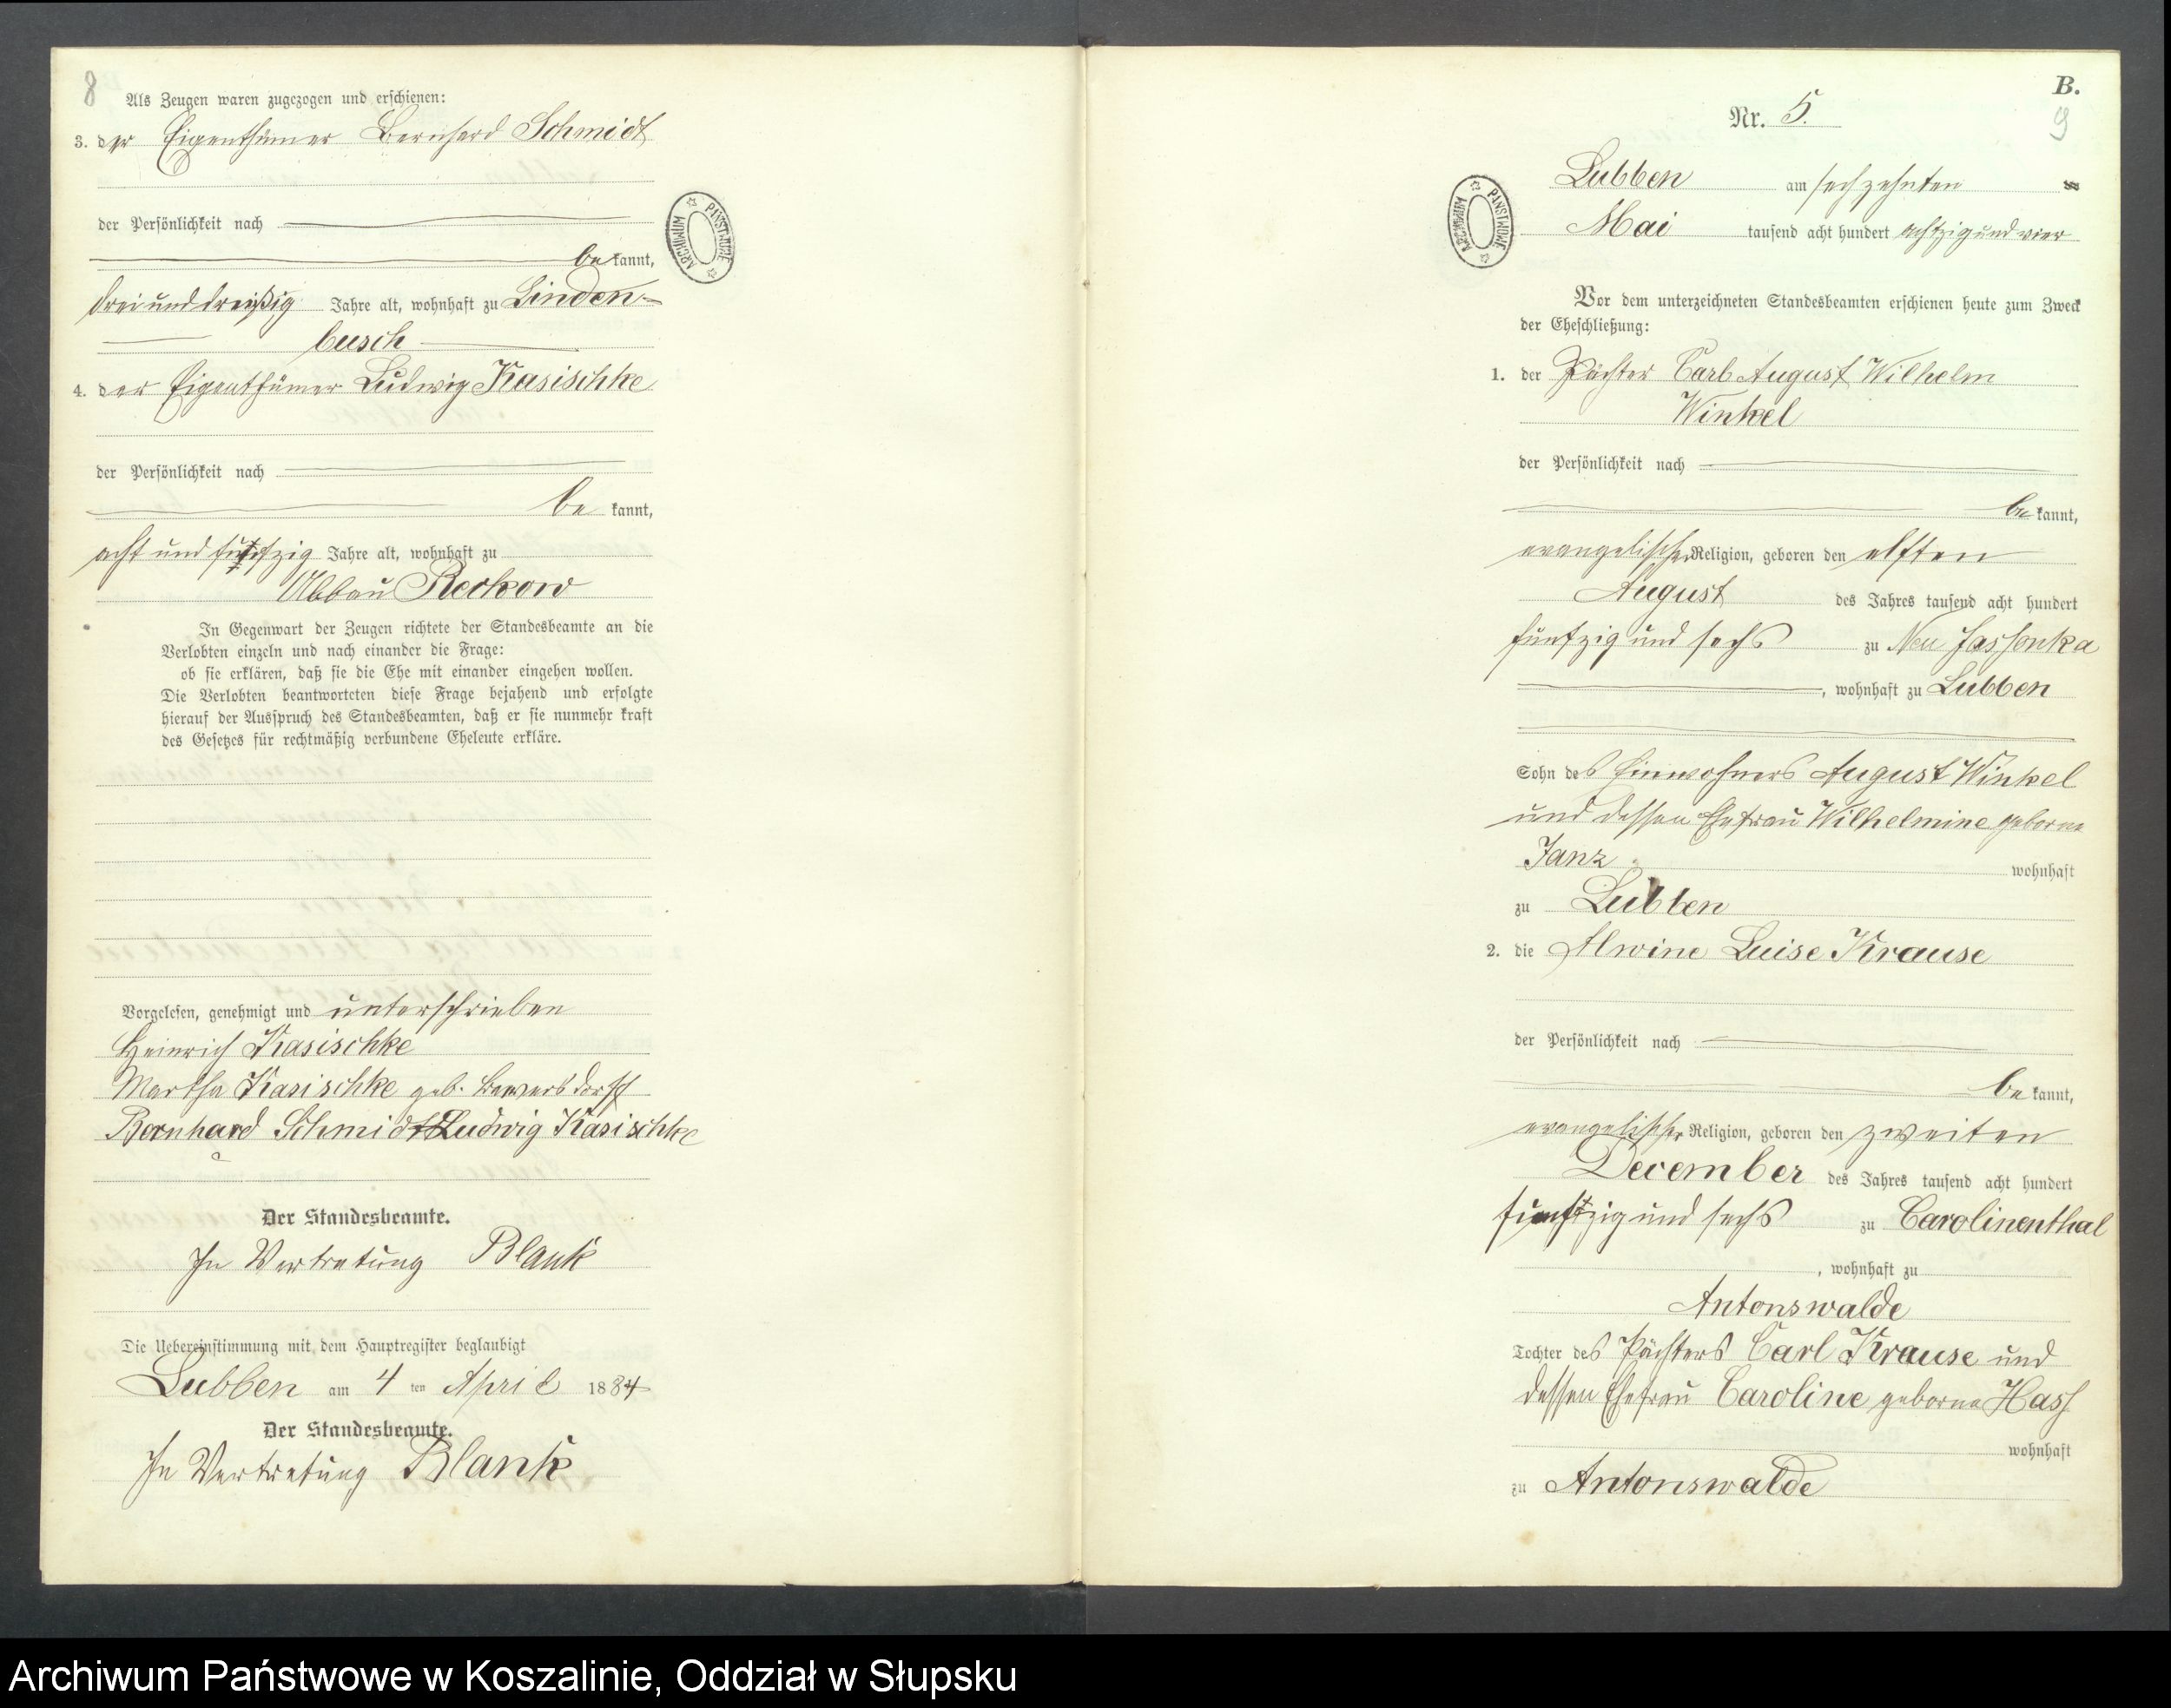 8
Als Zeugen waren zugezogen und erschienen:
3. der Eigenthümer Bernhard Schmidt
der Persönlichkeit nach
be kannt,
drei und dreißig Jahre alt, wohnhaft zu Linden-
busch
4. der Eigenthümer Ludwig Kasischke
der Persönlichkeit nach
be kannt,
acht und fünfzig Jahre alt, wohnhaft zu
Abbau Reckow
In Gegenwart der Zeugen richtete der Standesbeamte an die
Verlobten einzeln und nach einander die Frage:
ob sie erklären, daß sie die Ehe mit einander eingehen wollen.
Die Verlobten beantworteten diese Frage bejahend und erfolgte
hierauf der Ausspruch des Standesbeamten, daß er sie nunmehr kraft
des Gesetzes für rechtmäßig verbundene Eheleute erkläre.
Vorgelesen, genehmigt und unterschrieben
Heinrich Kasischke
Martha Kasischke geb. Bewersdorff
Bernhard Schmidt Ludwig Kasischke
Der Standesbeamte.
In Vertretung Blank
Die Uebereinstimmung mit dem Hauptregister beglaubigt
Lubben am 4 ten April 1884
Der Standesbeamte.
In Vertretung Blank
ARCHIWUM PAŃSTWOWE
B.
Nr. 5.
9
Lubben am sechzehnten
Mai tausend acht hundert achtzig und vier
ARCHIWUM PAŃSTWOWE
Vor dem unterzeichneten Standesbeamten erschienen heute zum Zweck
der Eheschließung:
1. der Pächter Carl August Wilhelm
Winkel
der Persönlichkeit nach
be kannt,
evangelischer Religion, geboren den elften
August des Jahres tausend acht hundert
fünfzig und sechs zu Neu Jassonka
, wohnhaft zu Lubben
Sohn des Einwohners August Winkel
und dessen Ehefrau Wilhelmine geborne
Janz wohnhaft
zu Lubben
2. die Alwine Luise Krause
der Persönlichkeit nach
be kannt,
evangelischer Religion, geboren den zweiten
December des Jahres tausend acht hundert
fünfzig und sechs zu Carolinenthal
, wohnhaft zu
Antonswalde
Tochter des Pächters Carl Krause und
dessen Ehefrau Caroline geborne Hass
wohnhaft
zu Antonswalde
Archiwum Państwowe w Koszalinie, Oddział w Słupsku